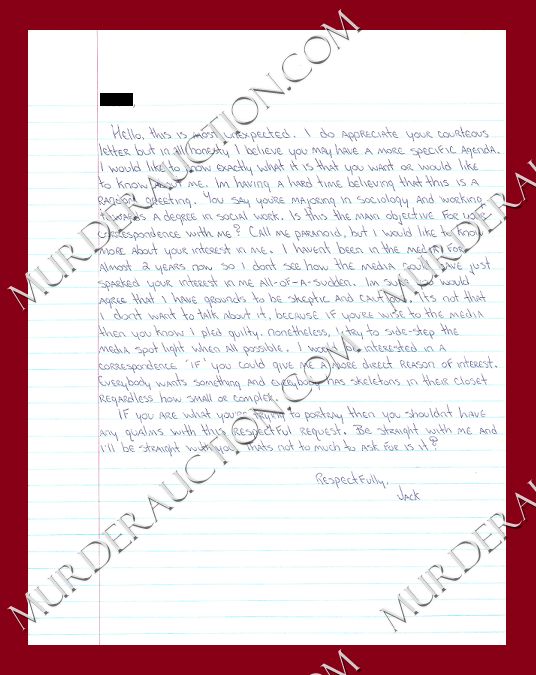 Hello, this is most unexpected. I do appreciate your courteous
letter but in all honesty I believe you may have a more specific agenda.
I would like to know exactly what it is that you want or would like
to know about me. Im having a hard time believing that this is a
random greeting. You say you're majoring in sociology and working
towards a degree in social work. Is this the main objective for your
correspondence with me? Call me paranoid, but I would like to know
more about your interest in me. I havent been in the media for
almost 2 years now so I dont see how the media could have just
sparked your interest in me all-of-a-sudden. Im sure you would
agree that I have grounds to be skeptic and cautious. Its not that
I don't want to talk about it, because if you're wise to the media
then you know I pled guilty. Nonetheless, I try to side-step the
media spot light when all possible. I would be interested in a
correspondence 'if' you could give me a more direct reason of interest.
Everybody wants something and everybody has skeletons in their closet
regardless how small or complex.
If you are what you're trying to portray then you shouldn't have
any qualms with this respectful request. Be straight with me and
I'll be straight with you. Thats not to much to ask for is it?
Respectfully,
Jack
MURDERAUCTION.COM
MURDERAUCTION.COM
MURDERAUCTION.COM
MURDERAUCTION.COM